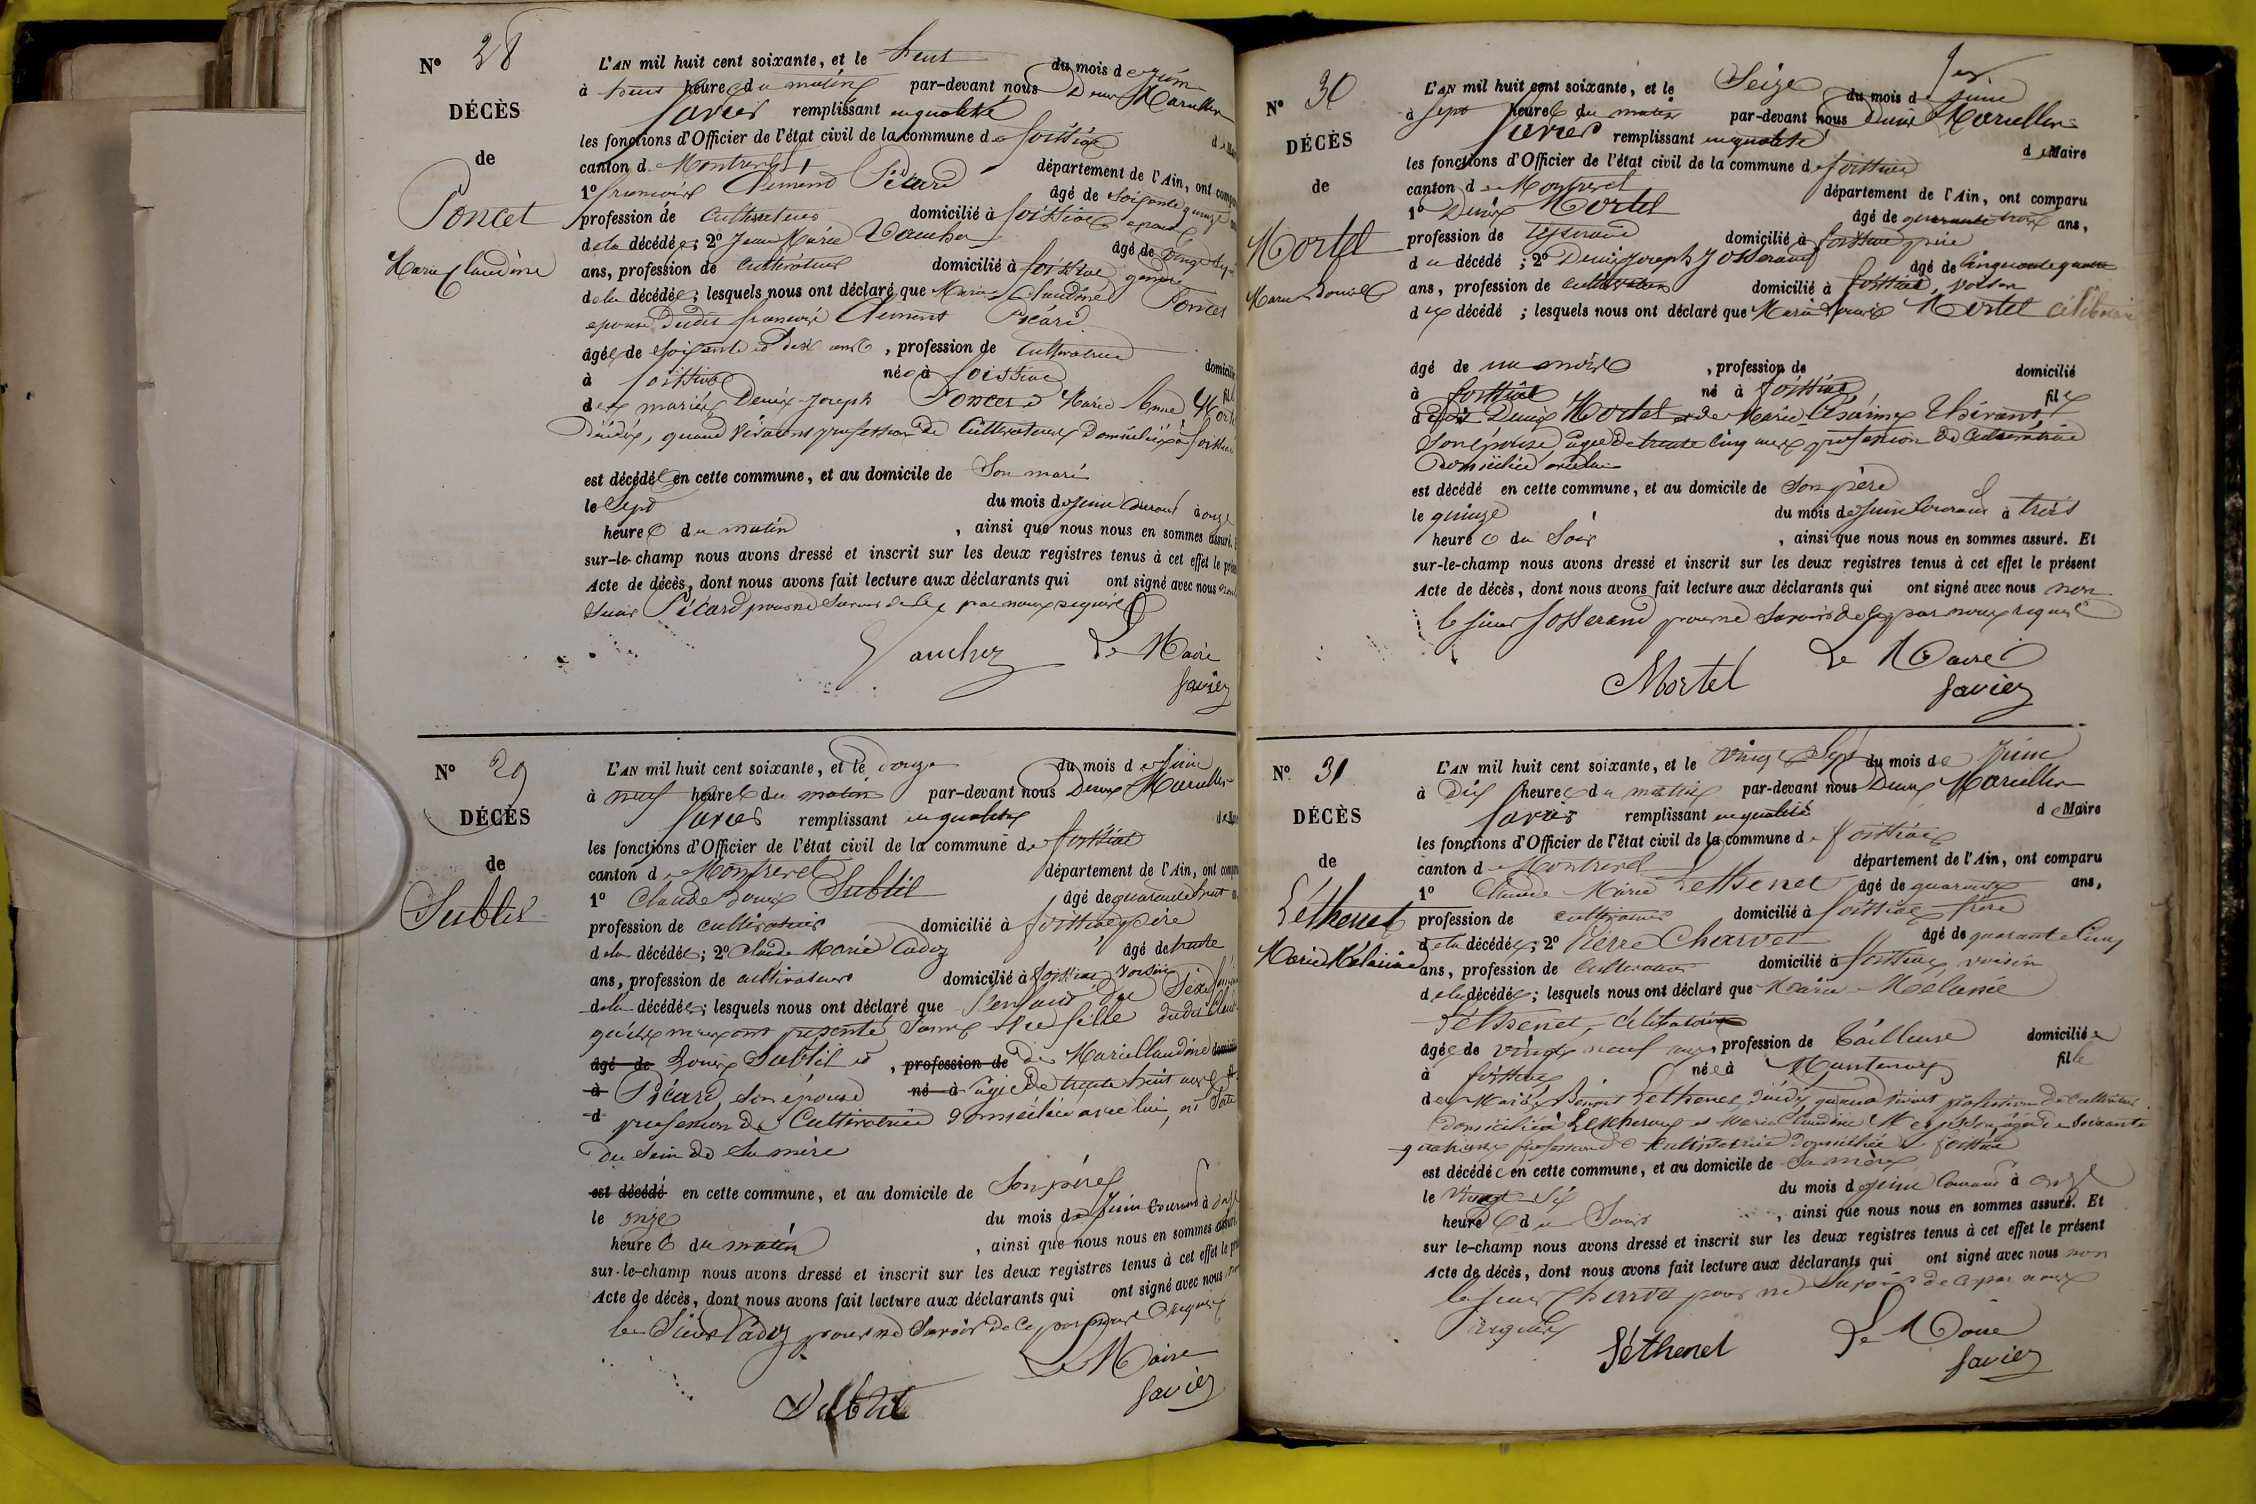 N° 28
DÉCÈS
de
Poncet
Marie Claudine
L'AN mil huit cent soixante, et le huit du mois de Juin
à heure du matin par-devant nous Denis Marcellin
Savier remplissant en qualité
les fonctions d'Officier de l'état civil de la commune de foissiat
canton d Montrevel département de l'Ain, ont
1° françois Clément Pécard âgé de soixante quinze
profession de cultivateur domicilié à foissiat époux
de la décédée; 2° Jean Marie Vaucher âgé de vingt
ans, profession de cultivateur domicilié à foissiat gendre
de la décédée; lesquels nous ont déclaré que Marie Claudine Poncet
epouse dudit françois Clément Pécard
âgée de soixante et dix ans, profession de cultivatrice domicilié
à foissiat née à foissiat
des mariés Denis-Joseph Poncet et Marie Anne
décédés, quand vivaient profession de Cultivateurs domiciliés à foissiat
est décédée en cette commune, et au domicile de Son mari
le Sept du mois de Juin Courant à onze
heure du matin, ainsi que nous nous en sommes assuré.
sur-le-champ nous avons dressé et inscrit sur les deux registres tenus à cet effet le
Acte de décès, dont nous avons fait lecture aux déclarants qui ont signé avec nous
Sieur Pécard pour ne Savoir de ce par nous requis
Vaucher Le Maire
Savier
N° 29
DÉCÈS
de
Sublit
L'AN mil huit cent soixante, et le douze du mois de Juin
à neuf heure du matin par-devant nous Denis Marcellin
Savier remplissant en qualité
les fonctions d'Officier de l'état civil de la commune de foissiat
canton de Montrevel département de l'Ain, ont
1° Claude Louis Sublit âgé de quarante huit
profession de cultivateur domicilié à foissiat père
de la décédée; 2° Claude Marie Cadoz âgé de trente
ans, profession de cultivateur domicilié à foissiat, voisin
de la décédée; lesquels nous ont déclaré que l'enfant du Sexe
qu'ils nous ont présenté Sans Vie fille dudit
âgé de Louis Sublit et, profession de de Marie Claudine
à Pécard, son épouse né à âgée de trente huit ans
d profession de Cultivatrice domiciliée avec lui, est
du Sein de Sa mère
est décédé en cette commune, et au domicile de Son père
le onze du mois de Juin Courant à
heure du matin, ainsi que nous nous en sommes
sur-le-champ nous avons dressé et inscrit sur les deux registres tenus à cet effet le
Acte de décès, dont nous avons fait lecture aux déclarants qui ont signé avec nous
le Sieur Cadoz pour ne Savoir de ce par nous requis
Le Maire
Sublit Savier
N° 30
DÉCÈS
de
Mortel
Marie Louise
L'AN mil huit cent soixante, et le Seize du mois de juin
à sept heure du matin par-devant nous Denis Marcellin
Savier remplissant en qualité de Maire
les fonctions d'Officier de l'état civil de la commune de foissiat
canton de Montrevel département de l'Ain, ont comparu
1° Denis Mortel âgé de quarante trois ans,
profession de tisserand domicilié à foissiat père
d u décédé; 2° Denis Joseph Josserand âgé de Cinquante quatre
ans, profession de cultivateur domicilié à foissiat, voisin
d décédé; lesquels nous ont déclaré que Marie Louise Mortel célibataire
âgé de un mois, profession de domicilié
à foissiat né à foissiat fille
dudit Denis Mortel et de Marie
Son épouse âgée de trente cinq ans profession de cultivatrice
domiciliée avec lui
est décédé en cette commune, et au domicile de Son père
le quinze du mois de Juin Courant à trois
heure du Soir, ainsi que nous nous en sommes assuré. Et
sur-le-champ nous avons dressé et inscrit sur les deux registres tenus à cet effet le présent
Acte de décès, dont nous avons fait lecture aux déclarants qui ont signé avec nous non
le sieur Josserand pour ne Savoir de ce par nous requis
Le Maire
Mortel Savier
N° 31
DÉCÈS
de
Léthenet
Marie Mélanie
L'AN mil huit cent soixante, et le Vingt Sept du mois de Juin
à Dix heure du matin par-devant nous Denis Marcellin
Savier remplissant en qualité de Maire
les fonctions d'Officier de l'état civil de la commune de foissiat
canton d Montrevel département de l'Ain, ont comparu
1° Claude Marie Léthenet âgé de quarante ans,
profession de cultivateur domicilié à foissiat frère
de la décédée; 2° Pierre Charvet âgé de quarante Cinq
ans, profession de Cultivateur domicilié à foissiat voisin
de la décédée; lesquels nous ont déclaré que Marie Mélanie
Léthenet, célibataire
âgée de vingt neuf ans, profession de tailleuse domiciliée
à foissiat née à Mantenay fille
des Mariés Benoit Lethenet, décédé quand vivait profession de cultivateur
domicilié à et Marie Claudine âgée de soixante
quatre ans profession de Cultivatrice domiciliée à foissiat
est décédée en cette commune, et au domicile de Sa mère
le Vingt Six du mois de juin Courant à onze
heure du Soir, ainsi que nous nous en sommes assuré. Et
sur le-champ nous avons dressé et inscrit sur les deux registres tenus à cet effet le présent
Acte de décès, dont nous avons fait lecture aux déclarants qui ont signé avec nous non
le sieur Charvet pour ne Savoir de ce par nous
requis Le Maire
Léthenet Savier